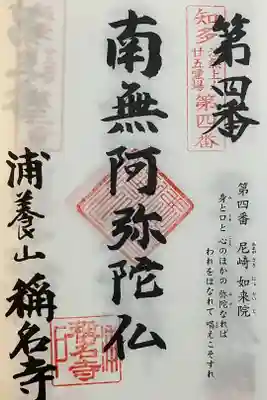 第四番
知多
廿五霊場
第四番
南無阿弥陀仏
第四番 尼崎 如来院
身と口と 心のほかの 弥陀なれば
われをはなれて 唱えこそすれ
浦養山 稱名寺